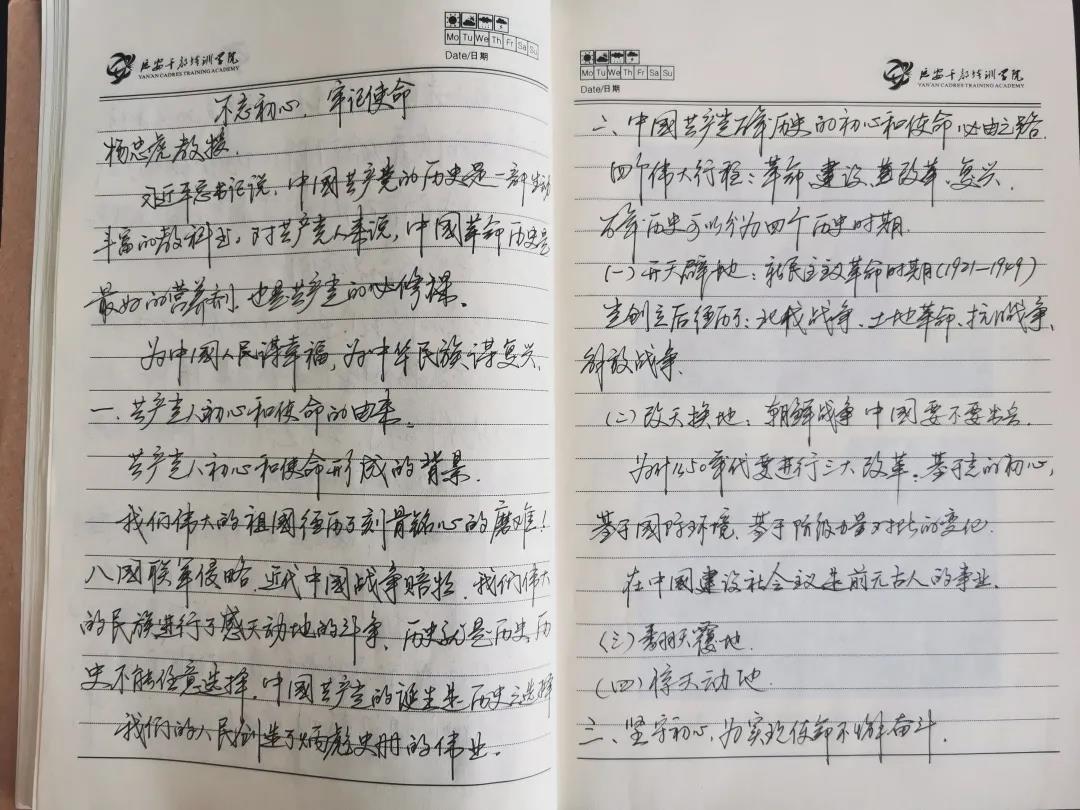 延安干部培训学院
YAN'AN CADRES TRAINING ACADEMY
Mo Tu We Th Fr Sa Su
Date/日期
不忘初心、牢记使命
杨忠虎教授.
习近平总书记说，中国共产党的历史是一部生动
丰富的教科书，对共产党人来说，中国革命历史是
最好的营养剂，也是共产党的必修课。
为中国人民谋幸福，为中华民族谋复兴、
一、共产党人初心和使命的由来。
共产党人初心和使命形成的背景.
我们伟大的祖国经历了刻骨铭心的磨难！
八国联军侵略、近代中国战争赔款、我们伟大
的民族进行了感天动地的斗争、历史就是历史，历
史不能任意选择，中国共产党的诞生是历史之选择
我们的人民创造了炳彪史册的伟业。
Mo Tu We Th Fr Sa Su
Date/日期
延安干部培训学院
YAN'AN CADRES TRAINING ACADEMY
二、中国共产党百年历史的初心和使命必由之路.
四个伟大行程：革命、建设、改革、复兴、
百年历史可以分为四个历史时期.
(一)开天辟地：新民主主义革命时期(1921—1949)
党创立后经历了：北伐战争、土地革命、抗日战争、
解放战争、
(二)改天换地：朝鲜战争中国要不要出兵.
为什么50年代要进行三大改革。基于党的初心，
基于国际环境、基于阶级力量对比的变化.
在中国建设社会主义是前无古人的事业.
(三)翻天覆地.
(四)惊天动地.
三、坚守初心、为实现使命不懈奋斗.